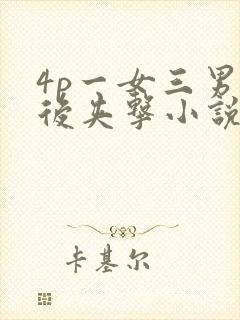 4p一女三男
後失擊小說
卡基尔